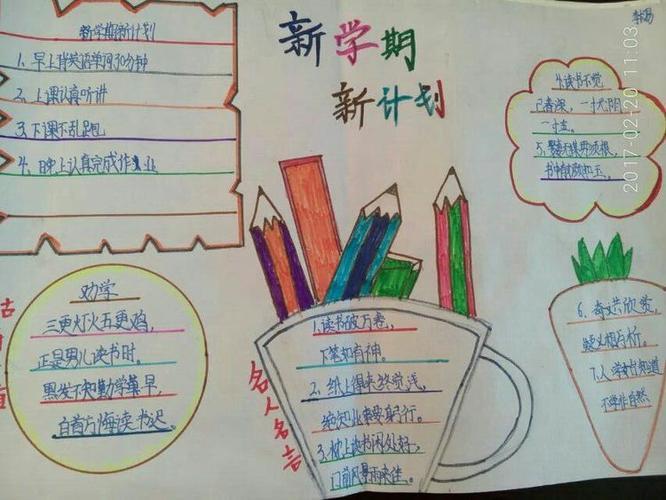 新学期
新计划
李易
新学期新计划
1、早上背英语单词30分钟
2、上课认真听讲
3、下课不乱跑
4、晚上认真完成作业
4、读书不觉
已春深，一寸光阴
一寸金。
5、
书中自有
2017-02-20 11:03
劝学
三更灯火五更鸡，
正是男儿读书时。
黑发不知勤学早，
白首方悔读书迟。
名人名言
1、读书破万卷，
下笔如有神。
2、纸上得来终觉浅，
绝知此事要躬行。
3、枕上读书闲处好，
门前风景雨来佳。
6、奇文共欣赏，
疑义相与析。
7、人学始知道
不学非自然